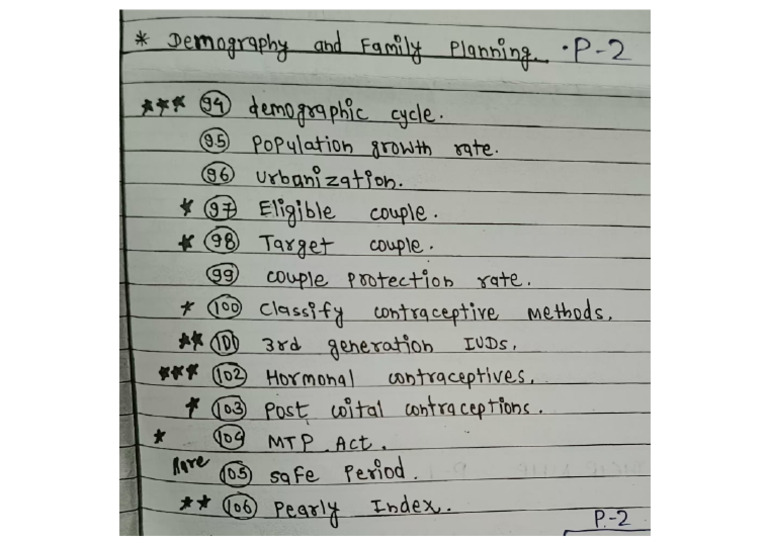 * Demography and Family Planning. • P-2
*** 94 demographic cycle.
95 Population growth rate.
96 Urbanization.
* 97 Eligible couple.
* 98 Target couple.
99 couple protection rate.
* 100 Classify contraceptive methods.
** 101 3rd generation IUDs.
*** 102 Hormonal contraceptives.
* 103 Post coital contraceptions.
* 104 MTP Act.
Rare 105 safe Period.
** 106 Pearly Index.
P.-2